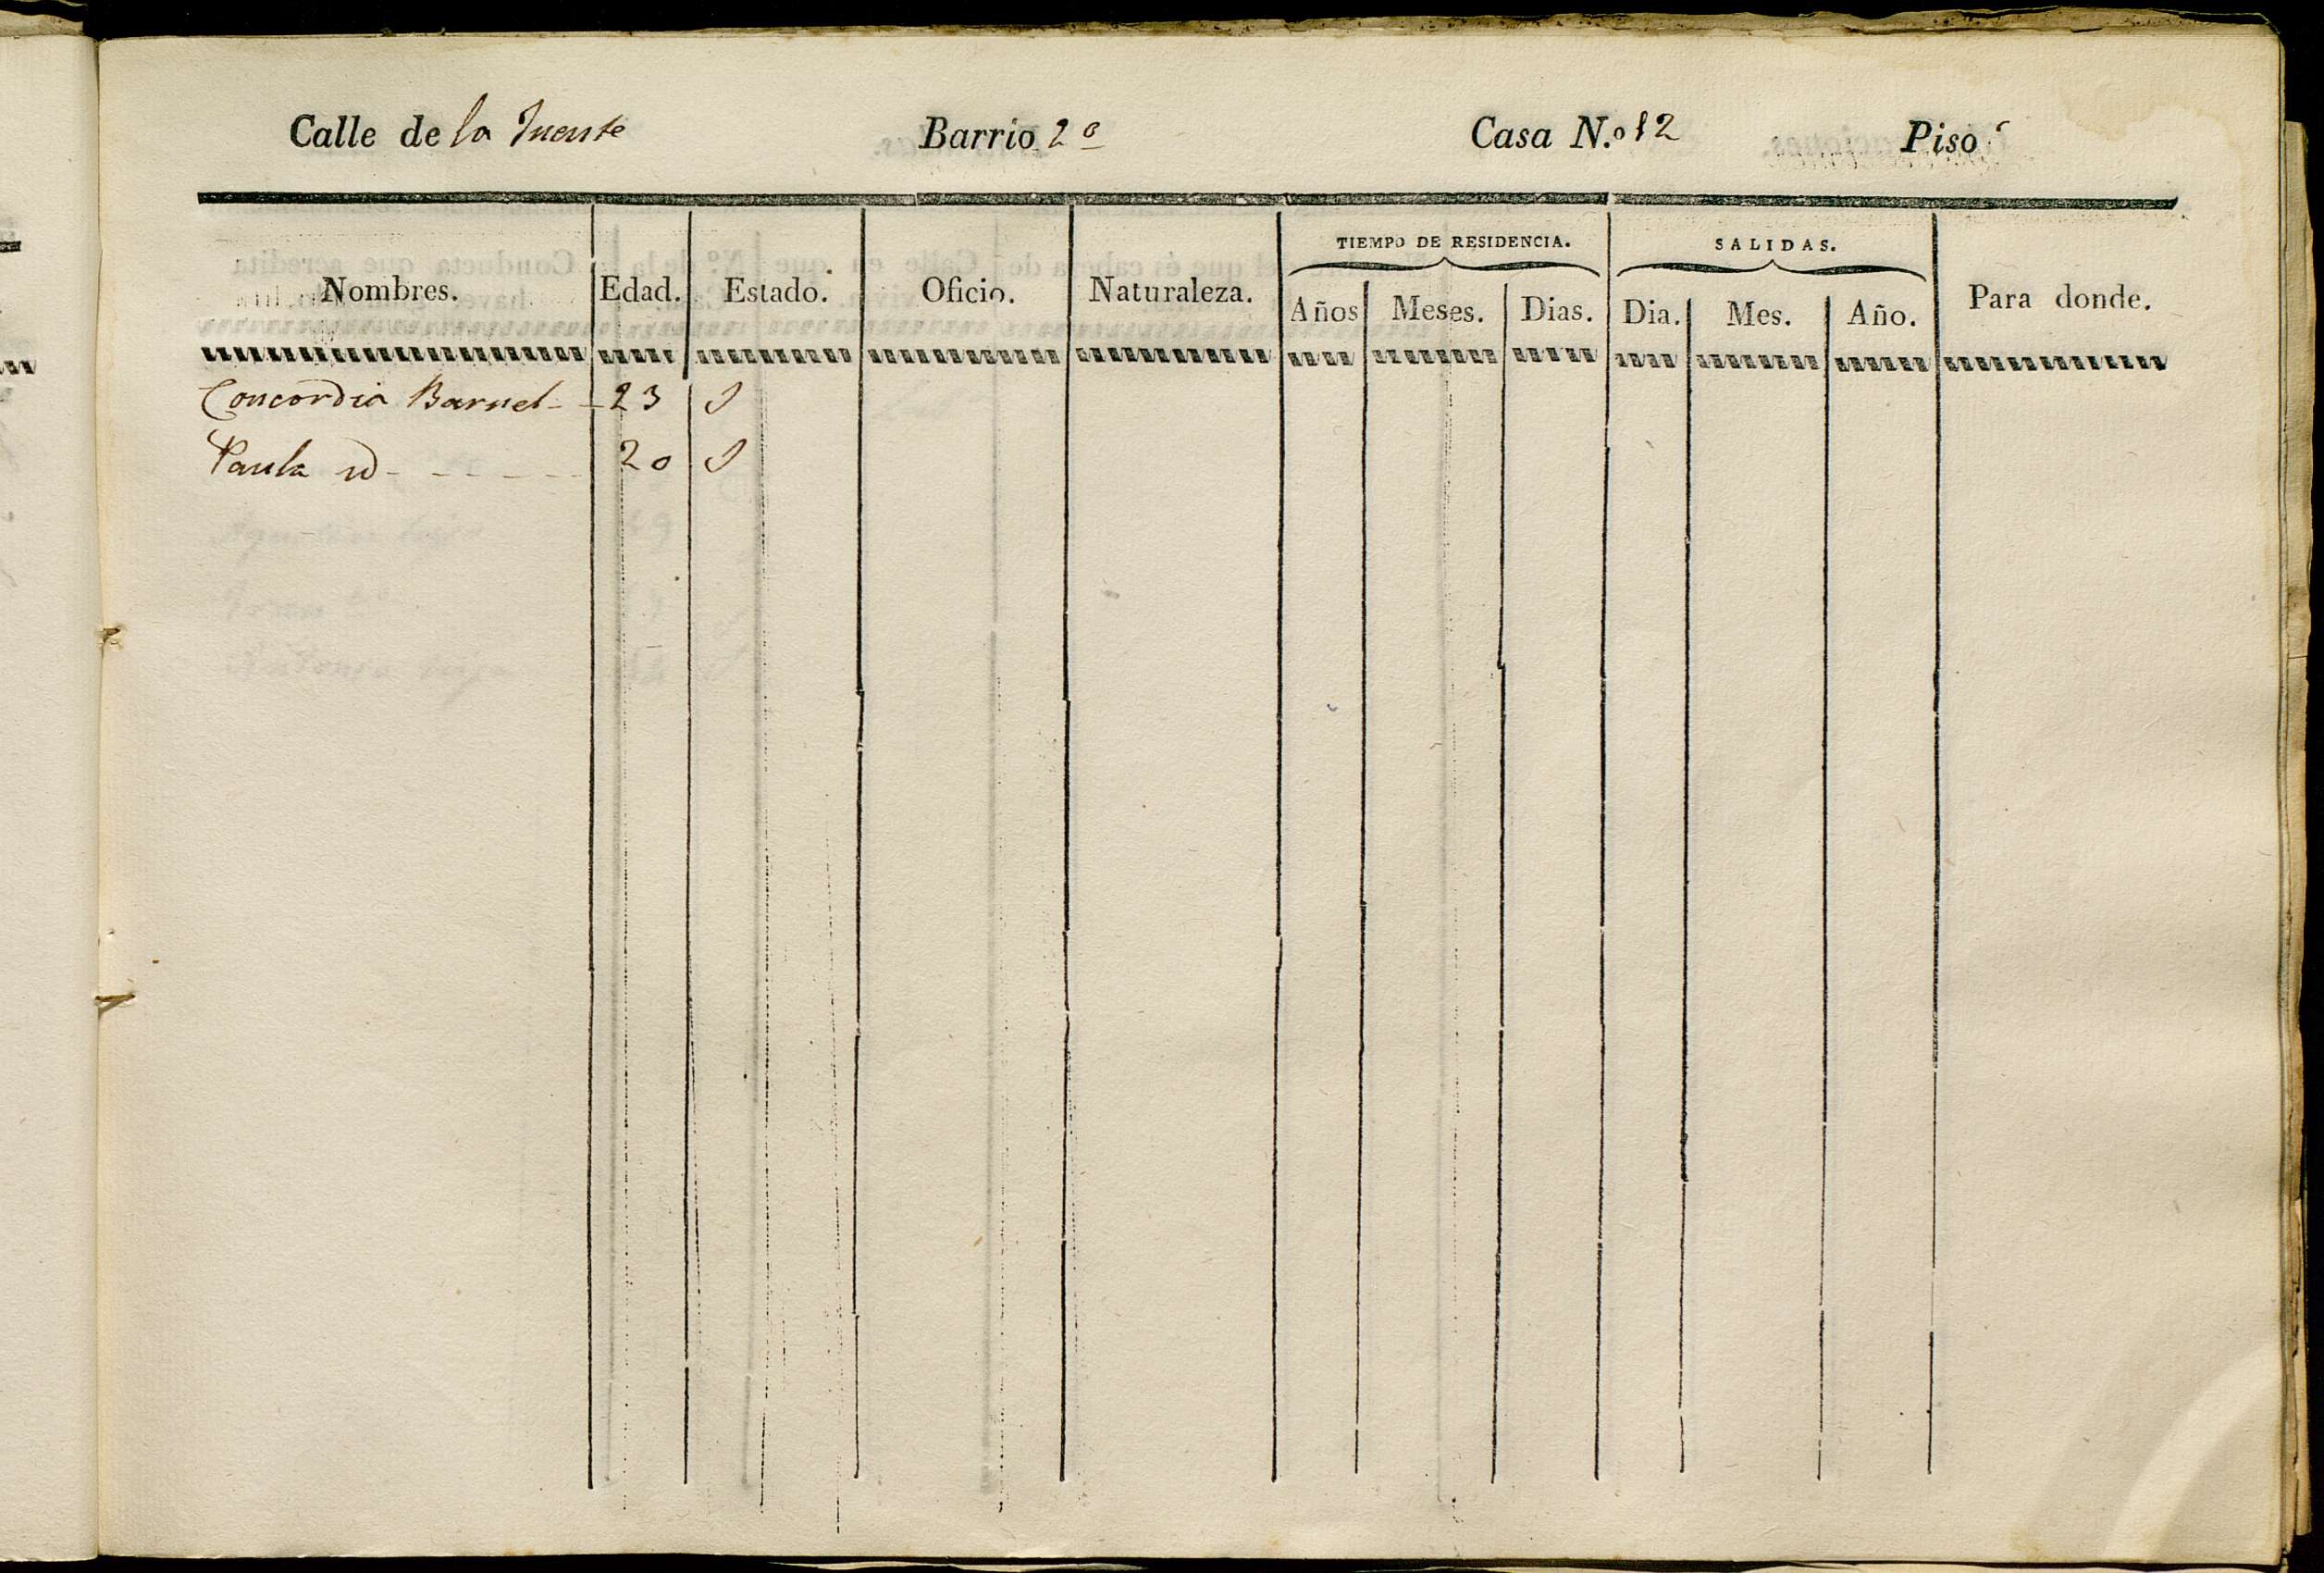 Calle de la Fuente Barrio 2º Casa N.º 12 Piso
TIEMPO DE RESIDENCIA. SALIDAS.
Nombres. Edad. Estado. Oficio. Naturaleza. Años Meses. Dias. Dia. Mes. Año. Para donde.
Concordia Barnet 23 S
Paula id 20 S